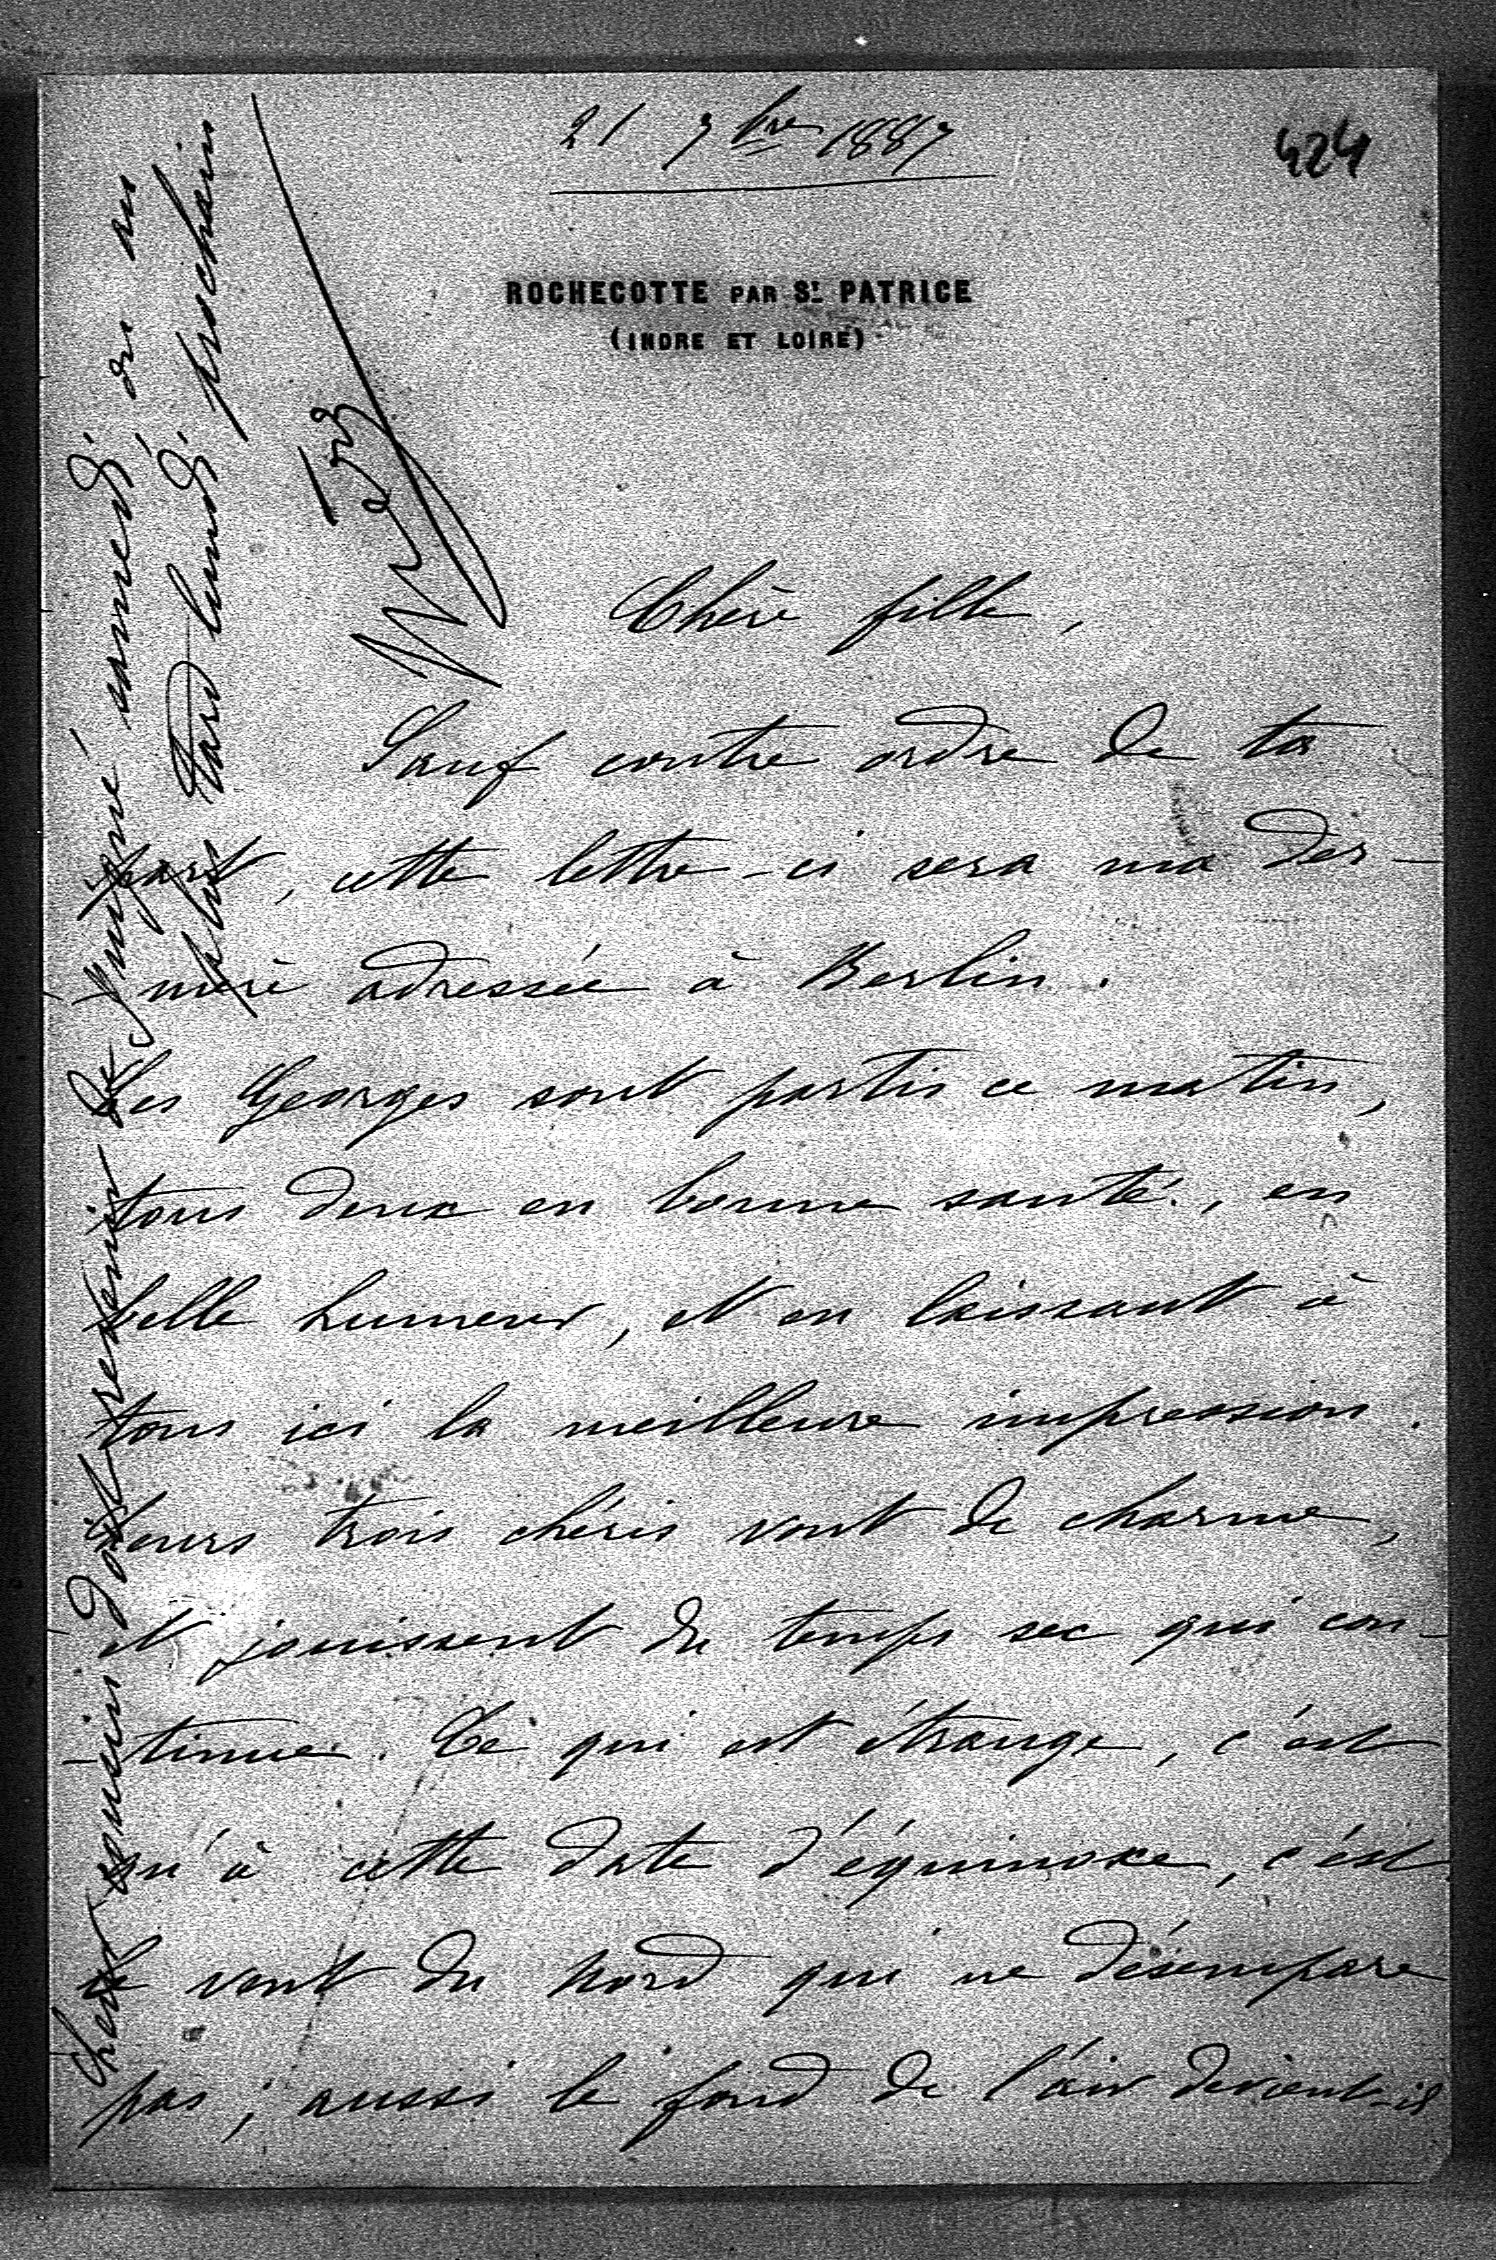 21 7bre 1887
424
ROCHECOTTE PAR ST PATRICE
(INDRE ET LOIRE)
Chère fille,
Sauf contre ordre de ta
part, cette lettre-ci sera ma der-
nière adressée à Berlin.
Les Georges sont partis ce matin,
tous deux en bonne santé, en
belle humeur, et en laissant à
tous ici la meilleure impression.
Leurs trois chéris vont de charme,
et jouissent du temps sec qui con-
tinue. Ce qui est étrange, c'est
qu'à cette date d'équinoxe, c'est
le vent du Nord qui ne désempare
pas; aussi le fond de l'air devient-il
cousin doit revenir de samedi ou au
plus tard lundi prochain